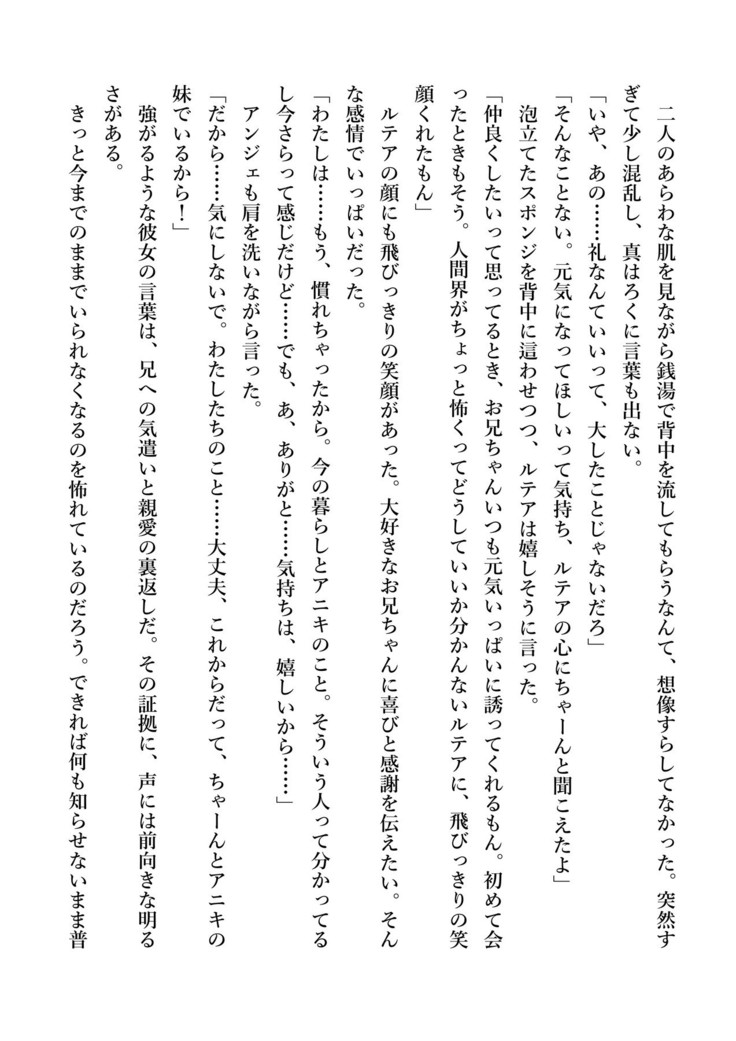 二人のあらわな肌を見ながら銭湯で背中を流してもらうなんて、想像すらしてなかった。突然す
ぎて少し混乱し、真はろくに言葉も出ない。
「いや、あの……礼なんていいって、大したことじゃないだろ」
「そんなことない。元気になってほしいって気持ち、ルテアの心にちゃーんと聞こえたよ」
　泡立てたスポンジを背中に這わせつつ、ルテアは嬉しそうに言った。
「仲良くしたいって思ってるとき、お兄ちゃんいつも元気いっぱいに誘ってくれるもん。初めて会
ったときもそう。人間界がちょっと怖くってどうしていいか分かんないルテアに、飛びっきりの笑
顔くれたもん」
　ルテアの顔にも飛びっきりの笑顔があった。大好きなお兄ちゃんに喜びと感謝を伝えたい。そん
な感情でいっぱいだった。
「わたしは……もう、慣れちゃったから。今の暮らしとアニキのこと。そういう人って分かってる
し今さらって感じだけど……でも、あ、ありがと……気持ちは、嬉しいから……」
　アンジェも肩を洗いながら言った。
「だから……気にしないで。わたしたちのこと……大丈夫、これからだって、ちゃーんとアニキの
妹でいるから！」
　強がるような彼女の言葉は、兄への気遣いと親愛の裏返しだ。その証拠に、声には前向きな明る
さがある。
　きっと今までのままでいられなくなるのを怖れているのだろう。できれば何も知らせないまま普